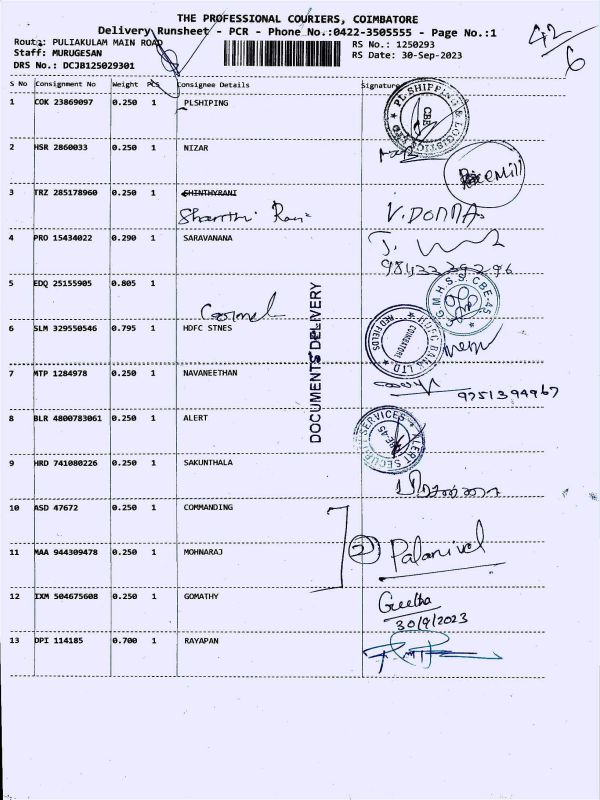 THE PROFESSIONAL COURIERS, COIMBATORE
Delivery Runsheet - PCR - Phone No.:0422-3505555 - Page No.:1
Route: PULIAKULAM MAIN ROAD
Staff: MURUGESAN
DRS No.: DCJB125029301
RS No.: 1250293
RS Date: 30-Sep-2023
42/6
S No Consignment No Weight PCS Consignee Details Signature
1 COK 23869097 0.250 1 PLSHIPING
PL SHIPPING & LOGISTICS
CBE
2 HSR 2860033 0.250 1 NIZAR
3 TRZ 285178960 0.250 1 SHINTHYRANI
Shanthi Rani V. DONNA
4 PRO 15434022 0.290 1 SARAVANANA
5 EDQ 25155905 0.805 1
Carmel
G.G.M.H.S.S. CBE-45.
6 SLM 329550546 0.795 1 HDFC STNES
HDFC BANK LTD
COIMBATORE
DOCUMENTS DELIVERY
7 MTP 1284978 0.250 1 NAVANEETHAN
9751394967
8 BLR 4800783061 0.250 1 ALERT
ALERT SECURITY SERVICES
9 HRD 741080226 0.250 1 SAKUNTHALA
10 ASD 47672 0.250 1 COMMANDING
11 MAA 944309478 0.250 1 MOHNARAJ
2 Palanivel
12 IXM 504675608 0.250 1 GOMATHY
Geetha
30/9/2023
13 DPI 114185 0.700 1 RAYAPAN